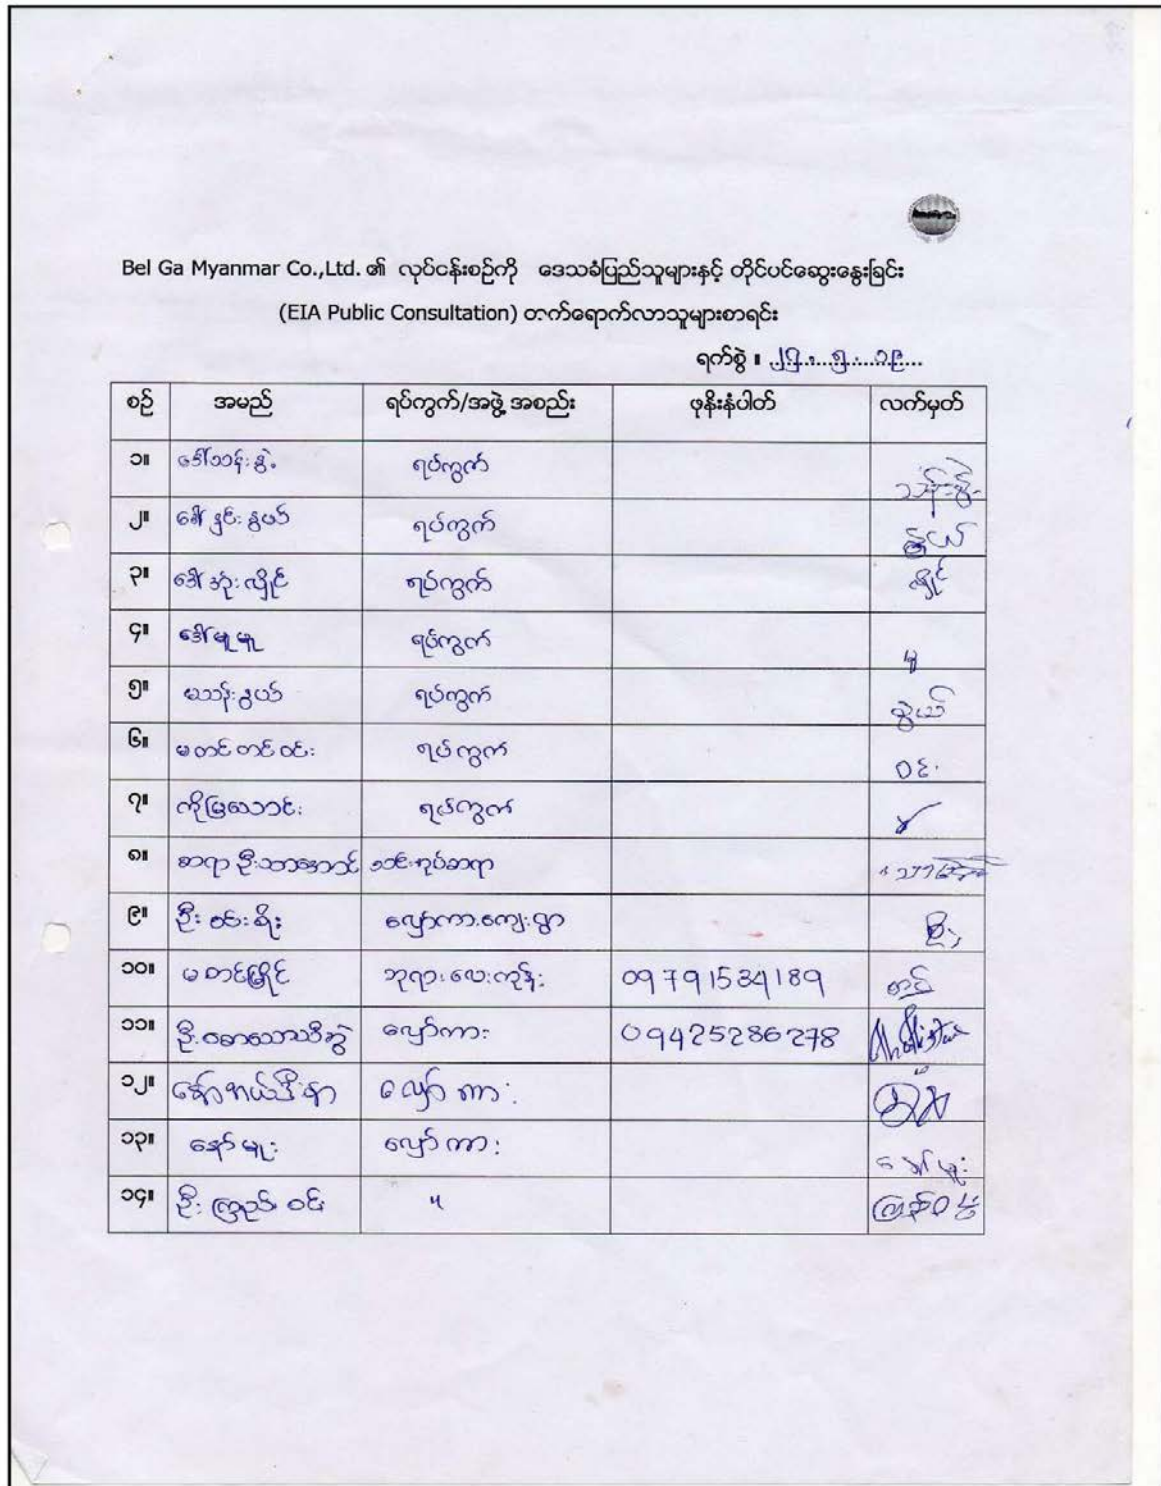 Bel Ga Myanmar Co.,Ltd. ၏ လုပ်ငန်းစဉ်ကို ဒေသခံပြည်သူများနှင့် တိုင်ပင်ဆွေးနွေးခြင်း
(EIA Public Consultation) တက်ရောက်လာသူများစာရင်း
ရက်စွဲ ။
စဉ် အမည် ရပ်ကွက်/အဖွဲ့ အစည်း ဖုနိးနံပါတ် လက်မှတ်
၁။ ဒေါ်သန်းနွဲ့ ရပ်ကွက် သန်းနွဲ့
၂။ ဒေါ်နှင်းနွယ် ရပ်ကွက် နွယ်
၃။ ဒေါ်အုံးလှိုင် ရပ်ကွက် လှိုင်
၄။ ဒေါ်မူမူ ရပ်ကွက် မူ
၅။ မသန်းနွယ် ရပ်ကွက် နွယ်
၆။ မတင်တင်ဝင်း ရပ်ကွက် ဝင်း
၇။ ကိုမြသောင်း ရပ်ကွက်
၈။ ဆရာဦးသာအောင် သင်းအုပ်ဆရာ
၉။ ဦးဝင်းစိုး လျှော်ကားကျေးရွာ စိုး
၁၀။ မတင်မြိုင် ဘုရားလေးကုန်း 09791534189 တင်
၁၁။ လျှော်ကား 09425286278
၁၂။ လျှော်ကား
၁၃။ နော်မူး လျှော်ကား နော်မူး
၁၄။ ဦးကြည်ဝင်း " ကြည်ဝင်း